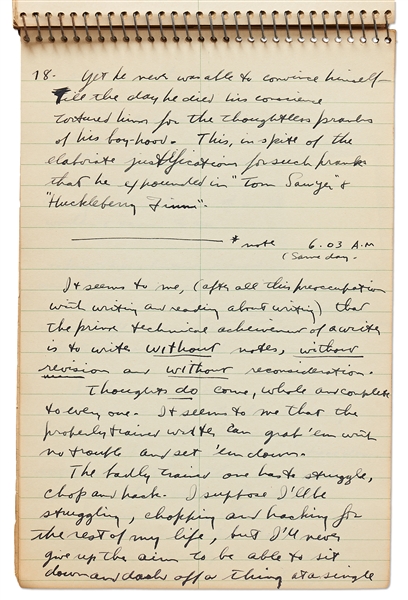 18. Yet he never was able to convince himself—
Till the day he died his conscience
tortured him for the thoughtless pranks
of his boy-hood. This, in spite of the
elaborate justifications for such pranks
that he expounded in "Tom Sawyer" &
"Huckleberry Finn".
* note 6.03 A.M
(Same day.
It seems to me, (after all this preoccupation
with writing and reading about writing) that
the prime technical achievement of a writer
is to write without notes, without
revision and without reconsideration.
Thoughts do come, whole and complete
to every one. It seems to me that the
properly trained writer can grab 'em with
no trouble and set 'em down.
The badly trained one has to struggle,
chop and hack. I suppose I'll be
struggling, chopping and hacking for
the rest of my life, but I'll never
give up the aim to be able to sit
down and dash off a thing at a single